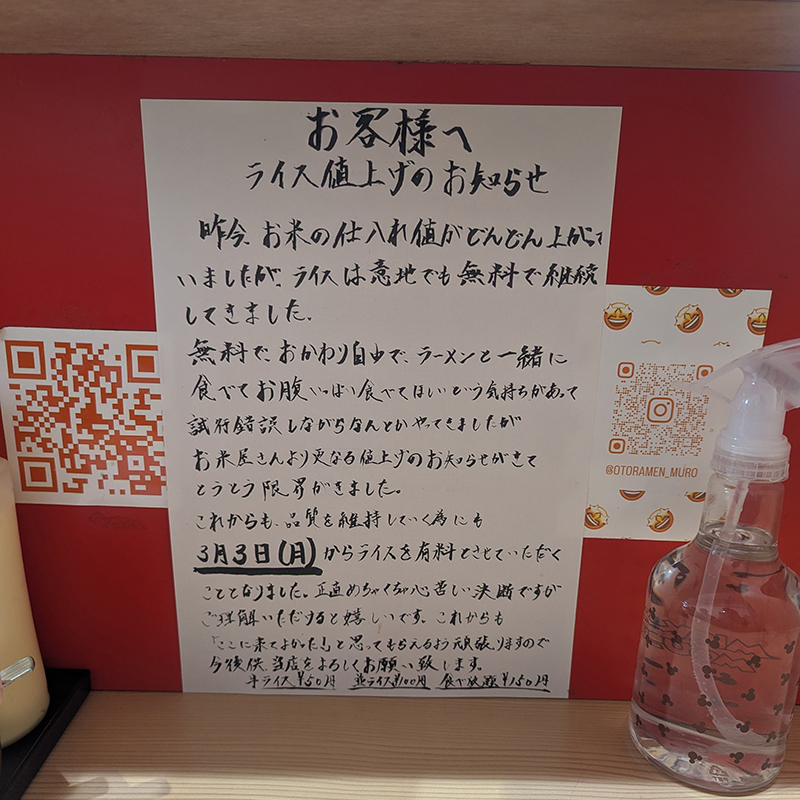 お客様へ
ライス値上げのお知らせ
昨今、お米の仕入れ値がどんどん上がって
いましたが、ライスは意地でも無料で継続
してきました。
無料で、おかわり自由で、ラーメンと一緒に
食べてお腹いっぱい食べてほしいという気持ちがあって
試行錯誤しながらなんとかやってきましたが
お米屋さんより更なる値上げのお知らせがきて
とうとう限界がきました。
これからも、品質を維持していく為にも
3月3日(月)からライスを有料とさせていただく
こととなりました。正直めちゃくちゃ心苦しい決断ですが
ご理解いただけると嬉しいです。これからも
「ここに来てよかった!」と思ってもらえるよう頑張りますので
今後供、当店をよろしくお願い致します。
半ライス¥50円 並ライス¥100円 食べ放題¥150円
@OTORAMEN_MURO